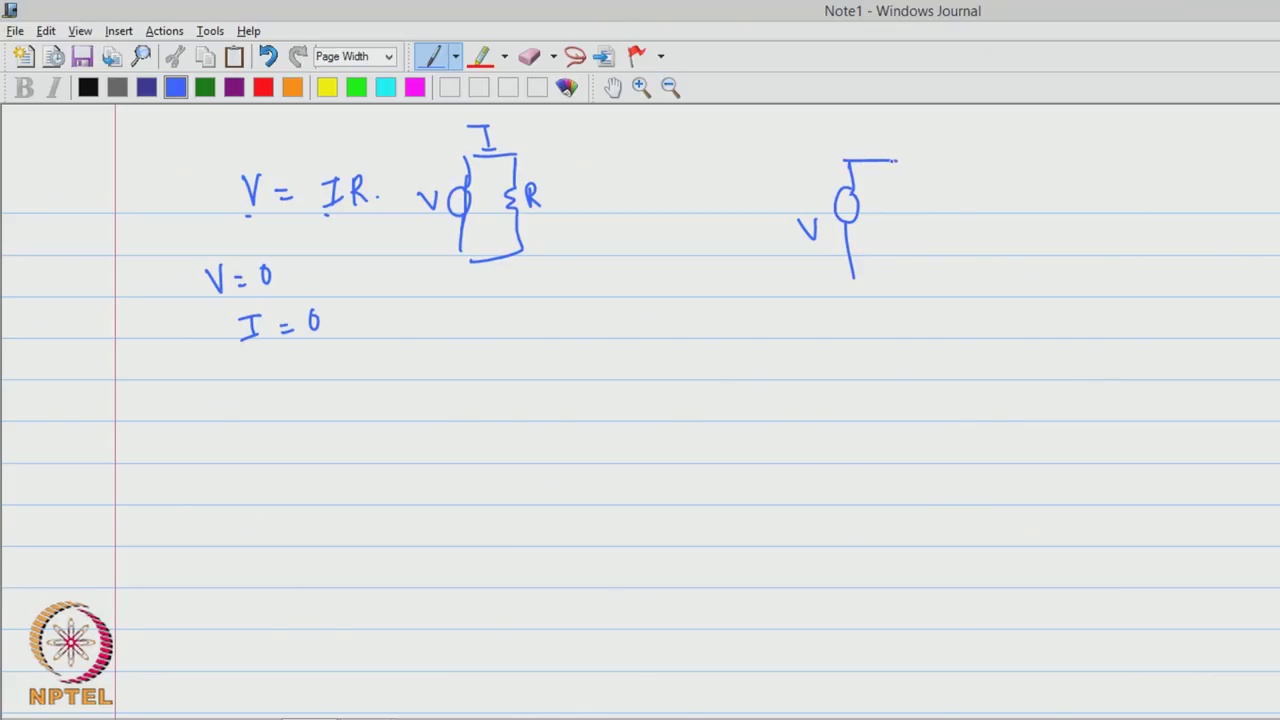 Note1 - Windows Journal
File Edit View Insert Actions Tools Help
Page Width
B I
I
V = IR. V R
V
V = 0
I = 0
NPTEL